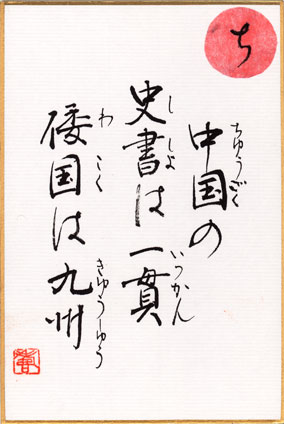 ち
中国の
ちゅうごく
史書は一貫
ししょ
いっかん
倭国は九州
わこく
きゅうしゅう